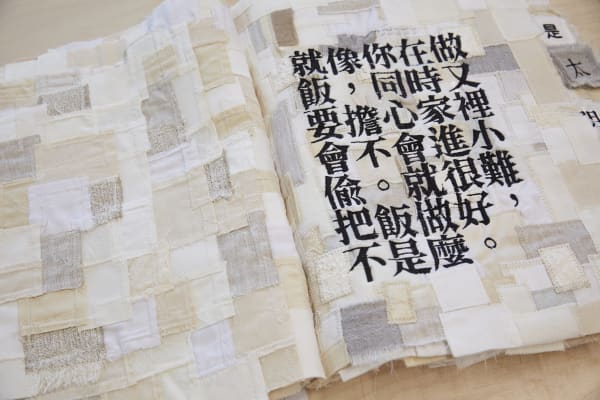 就像你在做
飯，同時又
要擔心家裡
會不會進小
偷。就很難，
把飯做好。
不是麼
是
太